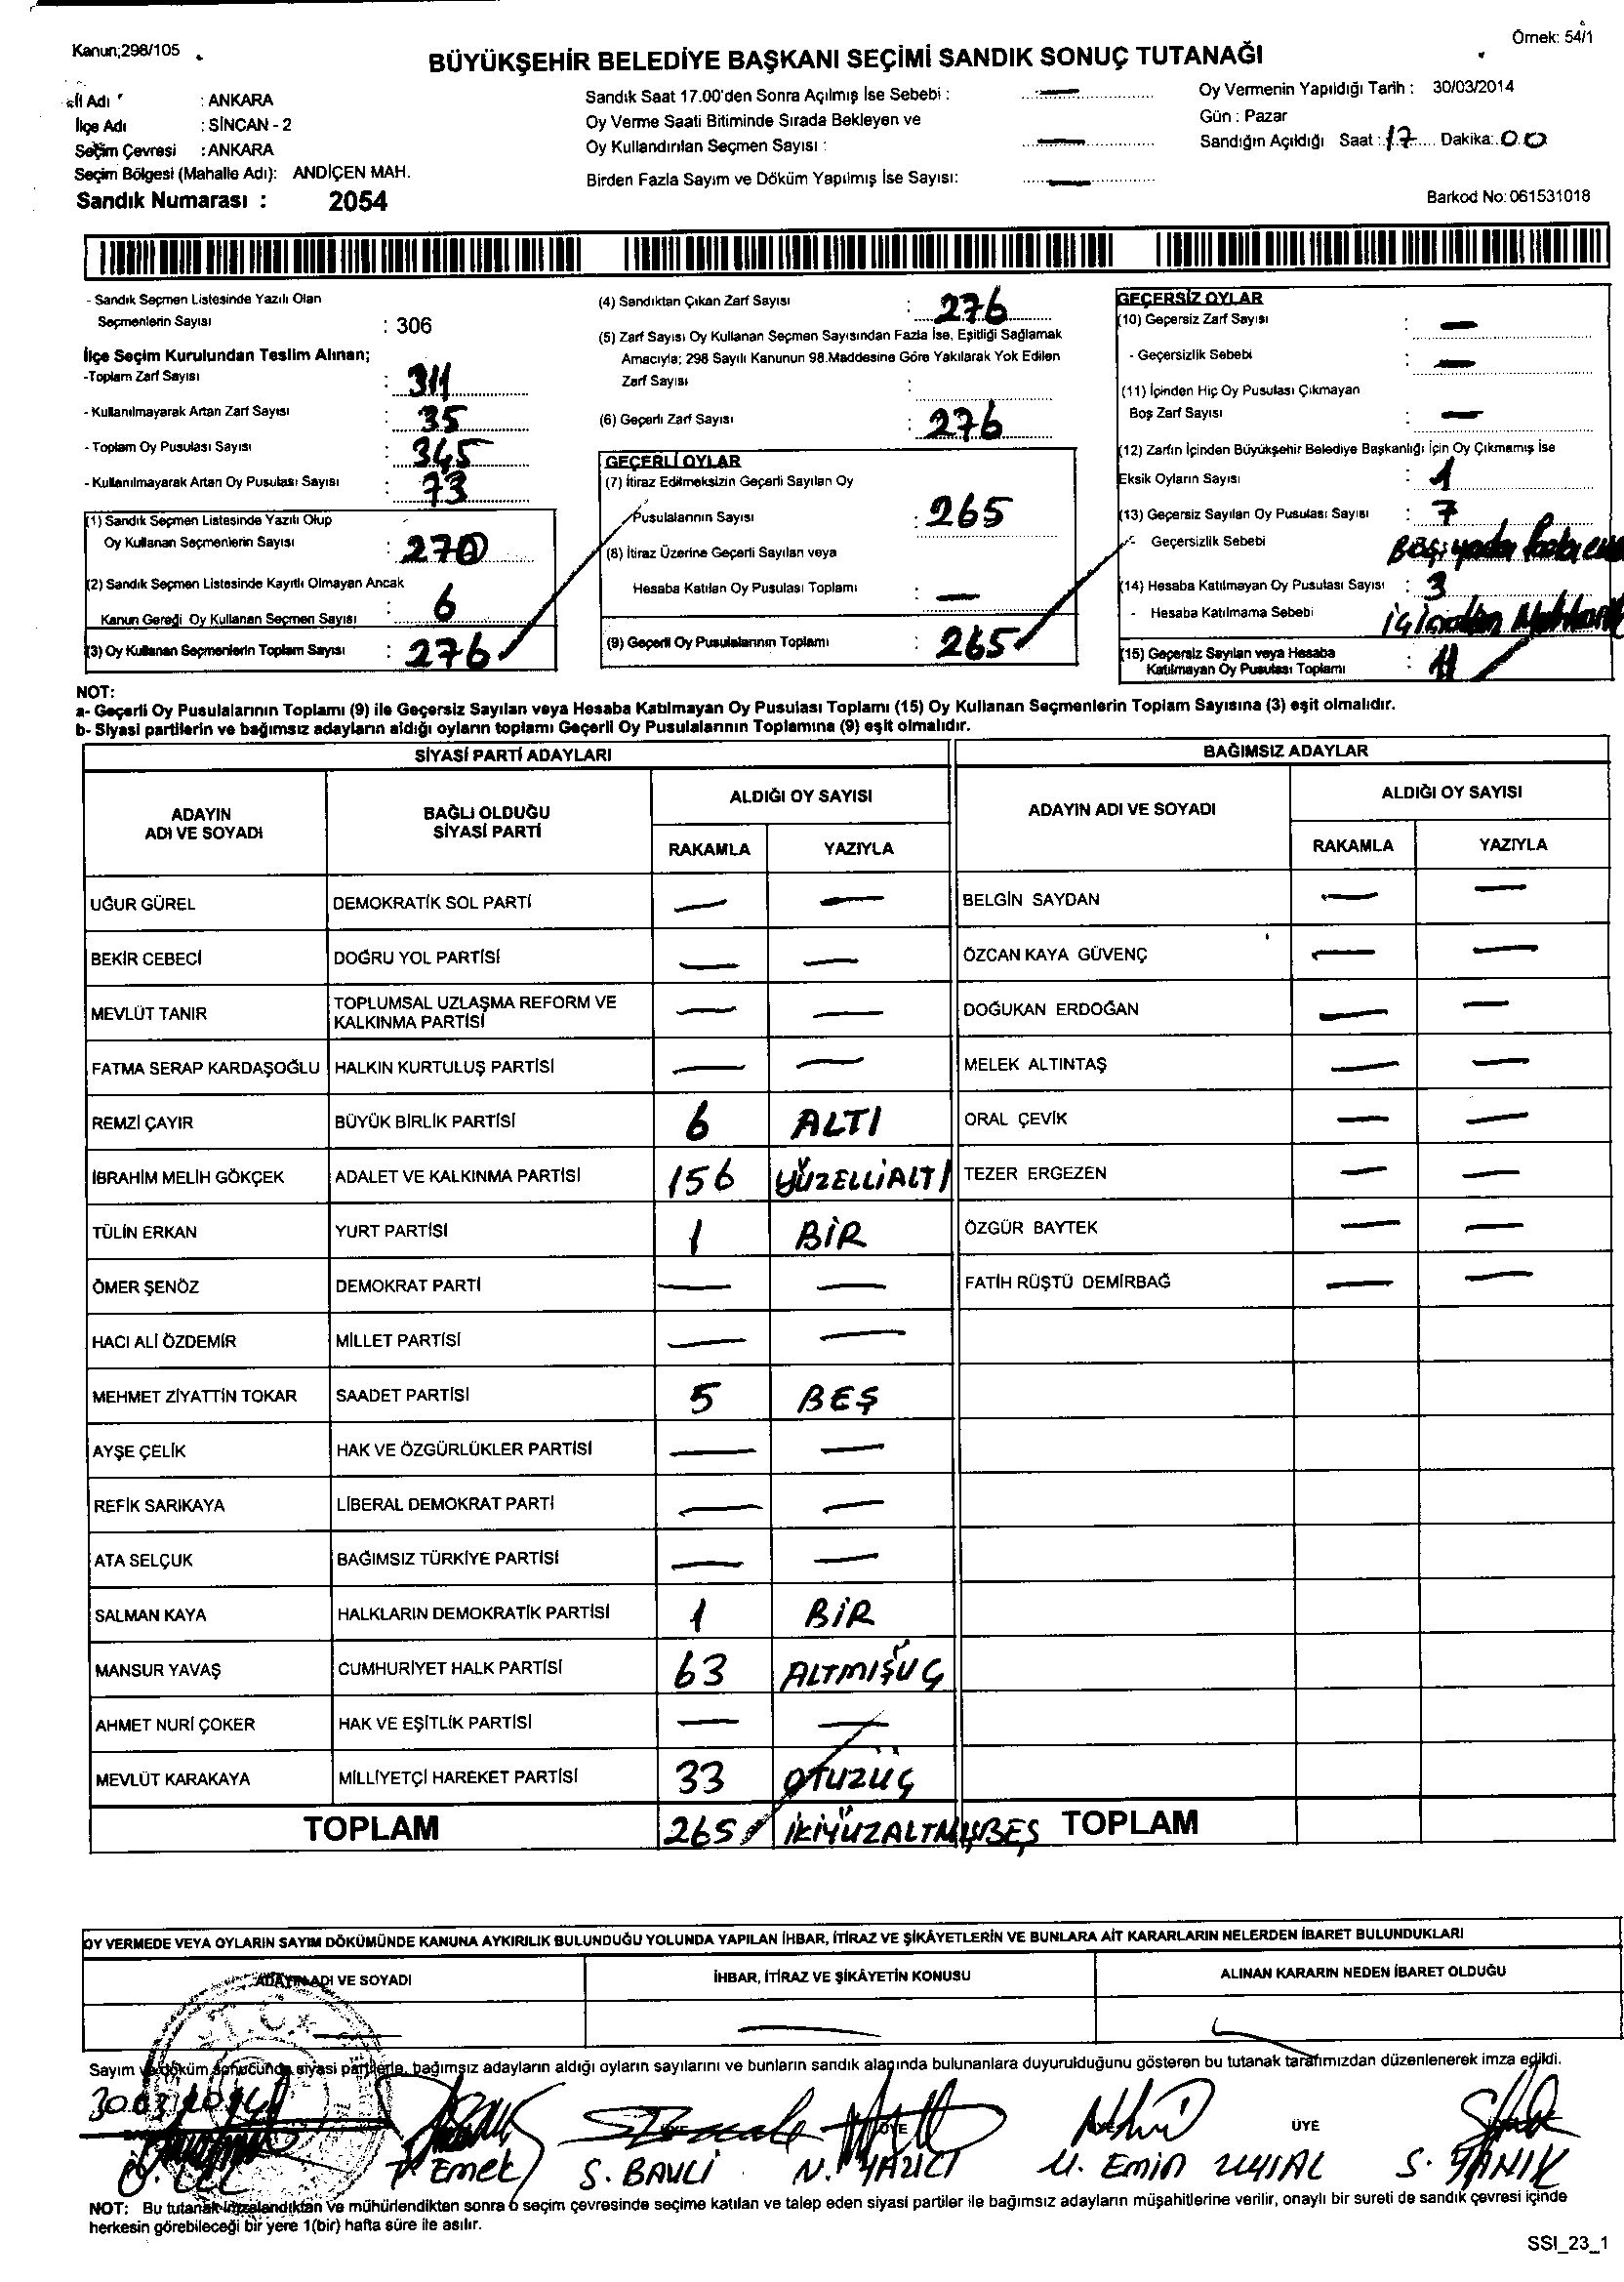 Kanun;298/105
Örnek: 54/1
BÜYÜKŞEHİR BELEDİYE BAŞKANI SEÇİMİ SANDIK SONUÇ TUTANAĞI
İl Adı : ANKARA
İlçe Adı : SİNCAN - 2
Seçim Çevresi : ANKARA
Seçim Bölgesi (Mahalle Adı): ANDİÇEN MAH.
Sandık Numarası : 2054
Sandık Saat 17.00'den Sonra Açılmış İse Sebebi : —
Oy Verme Saati Bitiminde Sırada Bekleyen ve
Oy Kullandırılan Seçmen Sayısı : —
Birden Fazla Sayım ve Döküm Yapılmış İse Sayısı: —
Oy Vermenin Yapıldığı Tarih : 30/03/2014
Gün : Pazar
Sandığın Açıldığı Saat : 17 Dakika: 00
Barkod No: 061531018
- Sandık Seçmen Listesinde Yazılı Olan
Seçmenlerin Sayısı : 306
İlçe Seçim Kurulundan Teslim Alınan;
-Toplam Zarf Sayısı : 311
- Kullanılmayarak Artan Zarf Sayısı : 35
- Toplam Oy Pusulası Sayısı : 345
- Kullanılmayarak Artan Oy Pusulası Sayısı : 73
(1) Sandık Seçmen Listesinde Yazılı Olup
Oy Kullanan Seçmenlerin Sayısı : 270
(2) Sandık Seçmen Listesinde Kayıtlı Olmayan Ancak
Kanun Gereği Oy Kullanan Seçmen Sayısı : 6
(3) Oy Kullanan Seçmenlerin Toplam Sayısı : 276
(4) Sandıktan Çıkan Zarf Sayısı : 276
(5) Zarf Sayısı Oy Kullanan Seçmen Sayısından Fazla İse, Eşitliği Sağlamak
Amacıyla; 298 Sayılı Kanunun 98.Maddesine Göre Yakılarak Yok Edilen
Zarf Sayısı :
(6) Geçerli Zarf Sayısı : 276
GEÇERLİ OYLAR
(7) İtiraz Edilmeksizin Geçerli Sayılan Oy
Pusulalarının Sayısı : 265
(8) İtiraz Üzerine Geçerli Sayılan veya
Hesaba Katılan Oy Pusulası Toplamı : —
(9) Geçerli Oy Pusulalarının Toplamı : 265
GEÇERSİZ OYLAR
(10) Geçersiz Zarf Sayısı : —
- Geçersizlik Sebebi : —
(11) İçinden Hiç Oy Pusulası Çıkmayan
Boş Zarf Sayısı : —
(12) Zarfın İçinden Büyükşehir Belediye Başkanlığı İçin Oy Çıkmamış İse
Eksik Oyların Sayısı : 1
(13) Geçersiz Sayılan Oy Pusulası Sayısı : 7
- Geçersizlik Sebebi
(14) Hesaba Katılmayan Oy Pusulası Sayısı : 3
- Hesaba Katılmama Sebebi
(15) Geçersiz Sayılan veya Hesaba
Katılmayan Oy Pusulası Toplamı : 11
NOT:
a- Geçerli Oy Pusulalarının Toplamı (9) ile Geçersiz Sayılan veya Hesaba Katılmayan Oy Pusulası Toplamı (15) Oy Kullanan Seçmenlerin Toplam Sayısına (3) eşit olmalıdır.
b- Siyasi partilerin ve bağımsız adayların aldığı oyların toplamı Geçerli Oy Pusulalarının Toplamına (9) eşit olmalıdır.
SİYASİ PARTİ ADAYLARI
BAĞIMSIZ ADAYLAR
ADAYIN ADI VE SOYADI
BAĞLI OLDUĞU SİYASİ PARTİ
ALDIĞI OY SAYISI
RAKAMLA YAZIYLA
ADAYIN ADI VE SOYADI
ALDIĞI OY SAYISI
RAKAMLA YAZIYLA
UĞUR GÜREL DEMOKRATİK SOL PARTİ — — BELGİN SAYDAN — —
BEKİR CEBECİ DOĞRU YOL PARTİSİ — — ÖZCAN KAYA GÜVENÇ — —
MEVLÜT TANIR TOPLUMSAL UZLAŞMA REFORM VE KALKINMA PARTİSİ — — DOĞUKAN ERDOĞAN — —
FATMA SERAP KARDAŞOĞLU HALKIN KURTULUŞ PARTİSİ — — MELEK ALTINTAŞ — —
REMZİ ÇAYIR BÜYÜK BİRLİK PARTİSİ 6 ALTI ORAL ÇEVİK — —
İBRAHİM MELİH GÖKÇEK ADALET VE KALKINMA PARTİSİ 156 YÜZELLİALTI TEZER ERGEZEN — —
TÜLİN ERKAN YURT PARTİSİ 1 BİR ÖZGÜR BAYTEK — —
ÖMER ŞENÖZ DEMOKRAT PARTİ — — FATİH RÜŞTÜ DEMİRBAĞ — —
HACI ALİ ÖZDEMİR MİLLET PARTİSİ — —
MEHMET ZİYATTİN TOKAR SAADET PARTİSİ 5 BEŞ
AYŞE ÇELİK HAK VE ÖZGÜRLÜKLER PARTİSİ — —
REFİK SARIKAYA LİBERAL DEMOKRAT PARTİ — —
ATA SELÇUK BAĞIMSIZ TÜRKİYE PARTİSİ — —
SALMAN KAYA HALKLARIN DEMOKRATİK PARTİSİ 1 BİR
MANSUR YAVAŞ CUMHURİYET HALK PARTİSİ 63 ALTMIŞÜÇ
AHMET NURİ ÇOKER HAK VE EŞİTLİK PARTİSİ — —
MEVLÜT KARAKAYA MİLLİYETÇİ HAREKET PARTİSİ 33 OTUZÜÇ
TOPLAM 265 İKİYÜZALTMIŞBEŞ TOPLAM
OY VERMEDE VEYA OYLARIN SAYIM DÖKÜMÜNDE KANUNA AYKIRILIK BULUNDUĞU YOLUNDA YAPILAN İHBAR, İTİRAZ VE ŞİKÂYETLERİN VE BUNLARA AİT KARARLARIN NELERDEN İBARET BULUNDUKLARI
ADAYIN ADI VE SOYADI İHBAR, İTİRAZ VE ŞİKÂYETİN KONUSU ALINAN KARARIN NEDEN İBARET OLDUĞU
— —
Sayım ve döküm sonucunda siyasi partilerle, bağımsız adayların aldığı oyların sayılarını ve bunların sandık alanında bulunanlara duyurulduğunu gösteren bu tutanak tarafımızdan düzenlenerek imza edildi.
30.03.2014
ÜYE
Emek S. BAVLİ N. YAZICI M. Emin UYSAL S. YANIK
NOT: Bu tutanak imzalandıktan ve mühürlendikten sonra o seçim çevresinde seçime katılan ve talep eden siyasi partiler ile bağımsız adayların müşahitlerine verilir, onaylı bir sureti de sandık çevresi içinde
herkesin görebileceği bir yere 1(bir) hafta süre ile asılır.
SSI_23_1